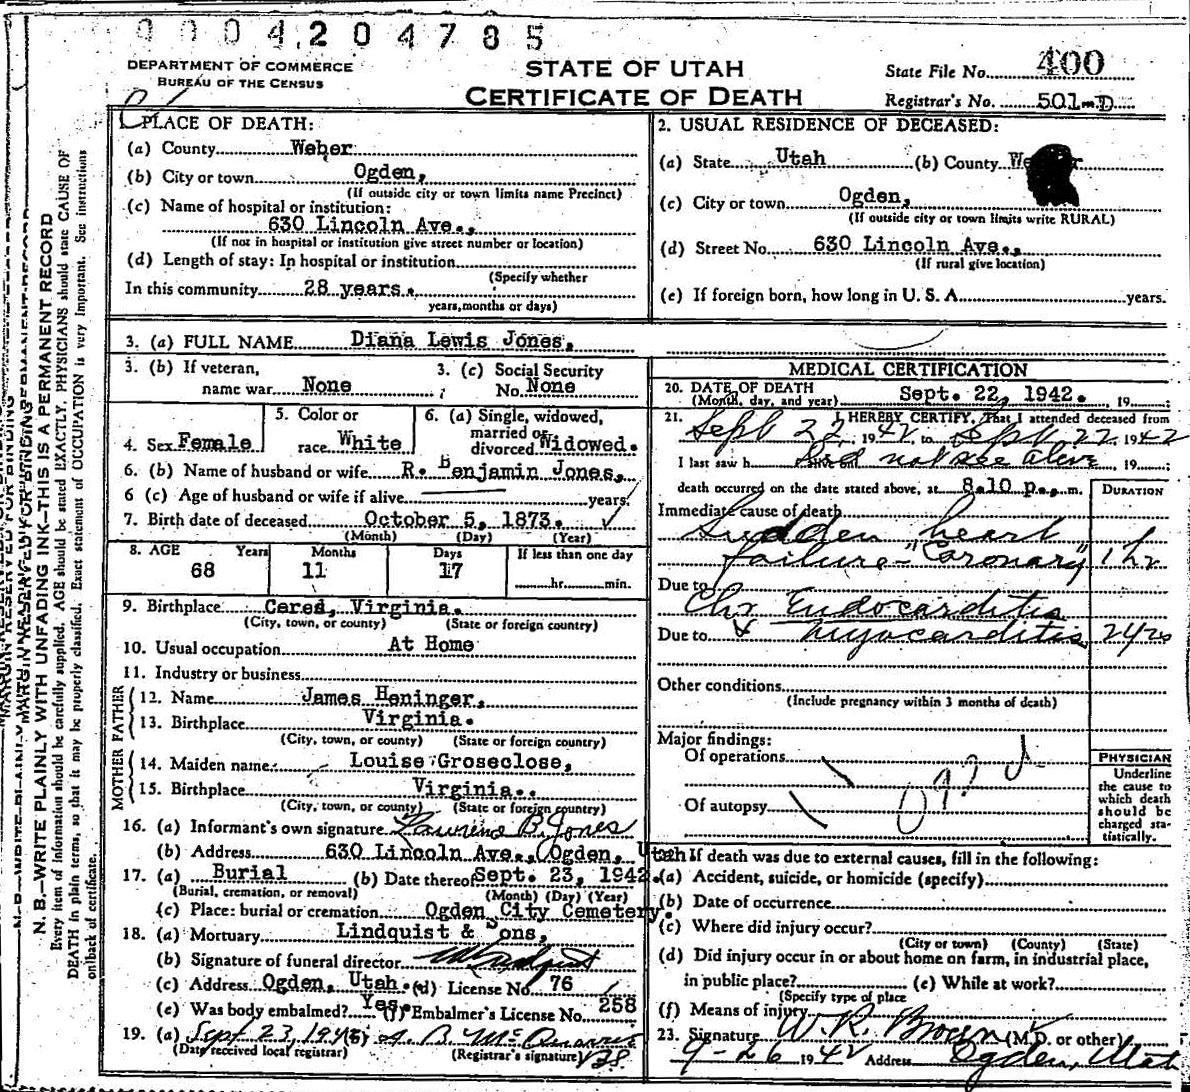 0004204785
DEPARTMENT OF COMMERCE
BUREAU OF THE CENSUS
STATE OF UTAH
CERTIFICATE OF DEATH
State File No. 400
Registrar's No. 501-D
N. B.—WRITE PLAINLY WITH UNFADING INK—THIS IS A PERMANENT RECORD
Every item of information should be carefully supplied. AGE should be stated EXACTLY. PHYSICIANS should state CAUSE OF
DEATH in plain terms, so that it may be properly classified. Exact statement of OCCUPATION is very important. See instructions
on back of certificate.
PLACE OF DEATH:
(a) County Weber
(b) City or town Ogden,
(If outside city or town limits name Precinct)
(c) Name of hospital or institution:
630 Lincoln Ave.,
(If not in hospital or institution give street number or location)
(d) Length of stay: In hospital or institution
(Specify whether
In this community 28 years.
years, months or days)
2. USUAL RESIDENCE OF DECEASED:
(a) State Utah (b) County
(c) City or town Ogden,
(If outside city or town limits write RURAL)
(d) Street No. 630 Lincoln Ave.,
(If rural give location)
(e) If foreign born, how long in U. S. A. years.
3. (a) FULL NAME Diana Lewis Jones,
3. (b) If veteran, name war None
3. (c) Social Security No. None
4. Sex Female
5. Color or race White
6. (a) Single, widowed, married or divorced Widowed.
6. (b) Name of husband or wife R. Benjamin Jones,
6 (c) Age of husband or wife if alive years
7. Birth date of deceased October 5, 1873.
(Month) (Day) (Year)
8. AGE Years Months Days If less than one day
68 11 17 hr. min.
9. Birthplace Ceres, Virginia.
(City, town, or county) (State or foreign country)
10. Usual occupation At Home
11. Industry or business
FATHER
12. Name James Heninger,
13. Birthplace Virginia.
(City, town, or county) (State or foreign country)
MOTHER
14. Maiden name Louise Groseclose,
15. Birthplace Virginia.
(City, town, or county) (State or foreign country)
16. (a) Informant's own signature B. Jones
(b) Address 630 Lincoln Ave., Ogden, Utah
17. (a) Burial (b) Date thereof Sept. 23, 1942.
(Burial, cremation, or removal) (Month) (Day) (Year)
(c) Place: burial or cremation Ogden City Cemetery.
18. (a) Mortuary Lindquist & Sons,
(b) Signature of funeral director
(c) Address Ogden, Utah. (d) License No. 76
(e) Was body embalmed? Yes. (f) Embalmer's License No. 258
19. (a) Sept 23, 1942 (b)
(Date received local registrar) (Registrar's signature)
MEDICAL CERTIFICATION
20. DATE OF DEATH Sept. 22, 1942. 19
(Month, day, and year)
21. I HEREBY CERTIFY, That I attended deceased from
Sept 22, 1942 to Sept 22 1942
I last saw h Did not see alive, 19 ;
death occurred on the date stated above, at 8.10 p. m.
DURATION
Immediate cause of death
Sudden heart
failure - "Coronary" 1 hr
Due to
Chr Endocarditis
Due to & Myocarditis
Other conditions
(Include pregnancy within 3 months of death)
Major findings:
Of operations
Of autopsy
PHYSICIAN
Underline
the cause to
which death
should be
charged sta-
tistically.
If death was due to external causes, fill in the following:
(a) Accident, suicide, or homicide (specify)
(b) Date of occurrence
(c) Where did injury occur?
(City or town) (County) (State)
(d) Did injury occur in or about home on farm, in industrial place,
in public place? (e) While at work?
(Specify type of place
(f) Means of injury
23. Signature W. R. Brown (M.D. or other)
9-26 1942 Address Ogden, Utah